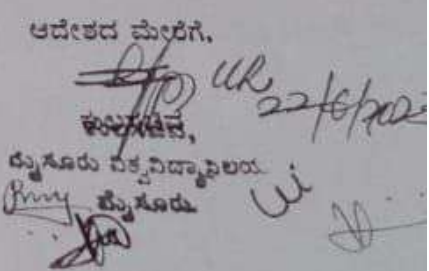 ಆದೇಶದ ಮೇರೆಗೆ,
22/6/2023
ಕುಲಸಚಿವ,
ಮೈಸೂರು ವಿಶ್ವವಿದ್ಯಾನಿಲಯ
ಮೈಸೂರು